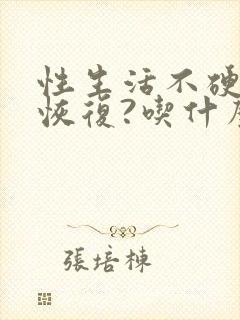 性生活不硬
恢復?喫什
張培棟